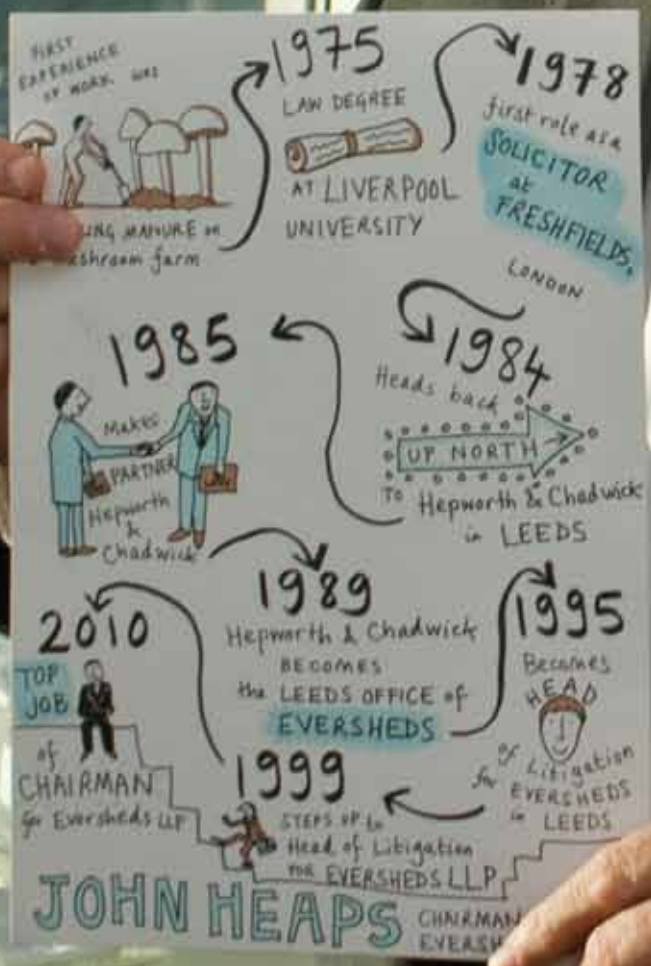 FIRST
EXPERIENCE
OF WORK WAS
MANURE on
mushroom farm
1975
LAW DEGREE
AT LIVERPOOL
UNIVERSITY
1978
first role as a
SOLICITOR
at
FRESHFIELDS,
LONDON
1984
Heads back
UP NORTH
TO Hepworth & Chadwick
in LEEDS
1985
Makes
PARTNER
Hepworth
&
Chadwick
1989
Hepworth & Chadwick
BECOMES
the LEEDS OFFICE of
EVERSHEDS
1995
Becomes
HEAD
of Litigation
for EVERSHEDS
in LEEDS
1999
STEPS UP to
Head of Litigation
for EVERSHEDS LLP
2010
TOP
JOB
of
CHAIRMAN
for Eversheds LLP
JOHN HEAPS
CHAIRMAN
EVERSH